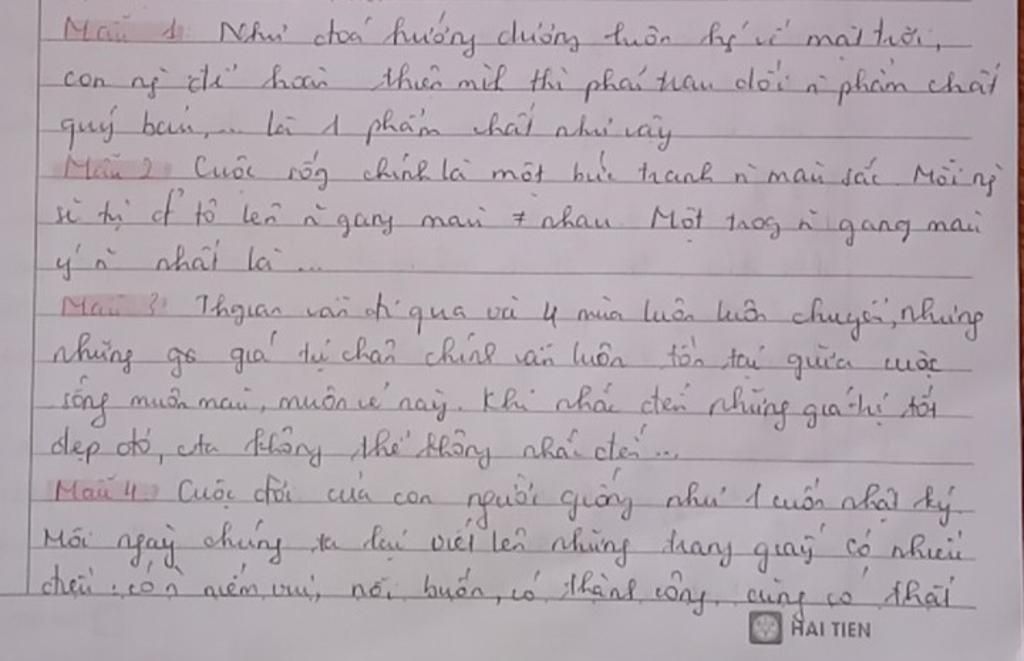 Mẫu 1: Như đoá hướng dương luôn hg về mặt trời,
con ng để hoàn thiện mik thì phải trau dồi n phẩm chất
quý báu,... là 1 phẩm chất như vậy
Mẫu 2: Cuộc sống chính là một bức tranh n màu sắc. Mỗi ng
sẽ tự tô lên n gang màu ≠ nhau. Một trog n gang màu
ý n nhất là ...
Mẫu 3: Thgian vẫn đi qua và 4 mùa luôn luân chuyển, nhưng
những gs giá trị chân chính vẫn luôn tồn tại giữa cuộc
sống muôn màu, muôn vẻ này. Khi nhắc đến những giá trị tốt
đẹp đó, cta không thể không nhắc đến ...
Mẫu 4: Cuộc đời của con người giống như 1 cuốn nhật ký.
Mỗi ngày chúng ta lại viết lên những trang giấy có nhiều
điều: có n niềm vui, nỗi buồn, có thành công, cũng có thất
HAI TIEN